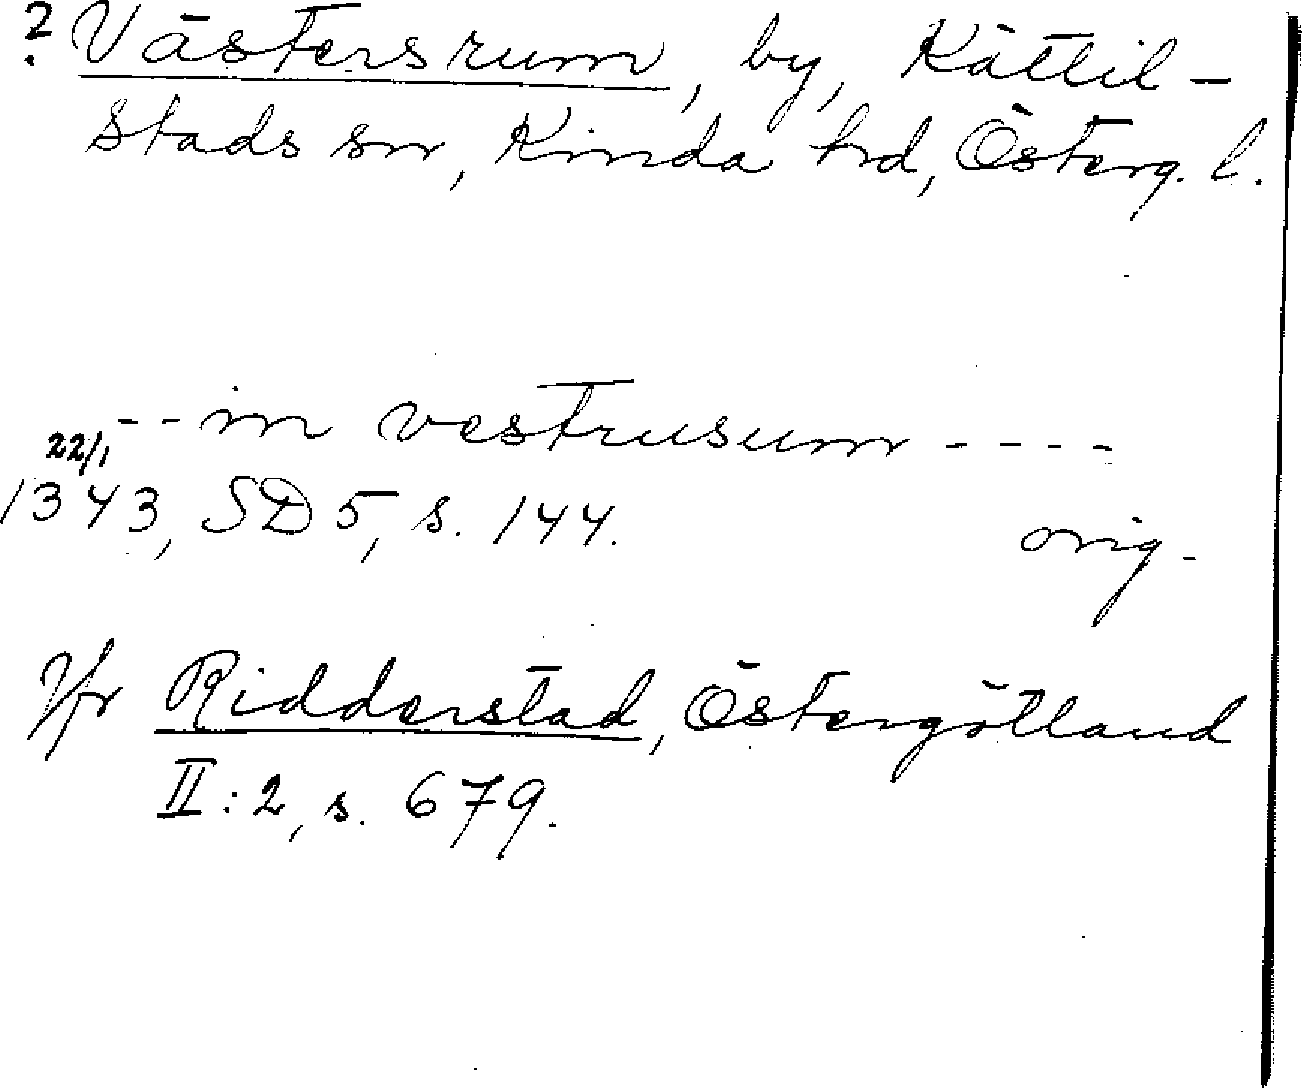 ? Västersrum, by, Kättil-
stads sn, Kinda hd, Österg. l.
--in vestrusum ----
22/1
1343, SD 5, s. 144. orig.
Jfr Ridderstad, Östergötland
II:2, s. 679.